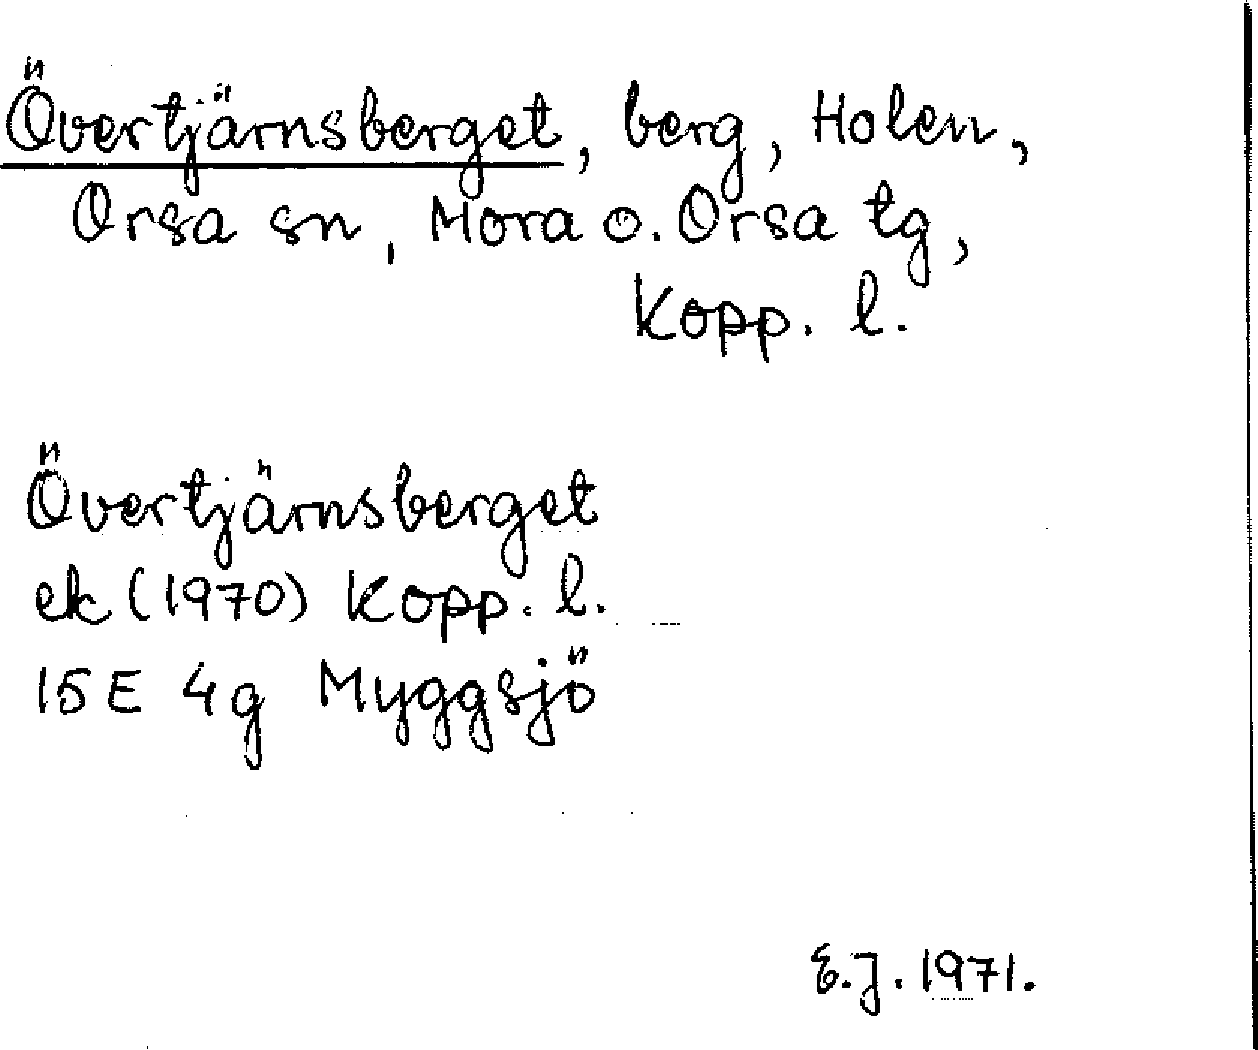 Övertjärnsberget, berg, Holen,
Orsa sn, Mora o. Orsa tg,
Kopp. l.
Övertjärnsberget
ek (1970) Kopp. l.
15 E 4g Myggsjö
E.J. 1971.